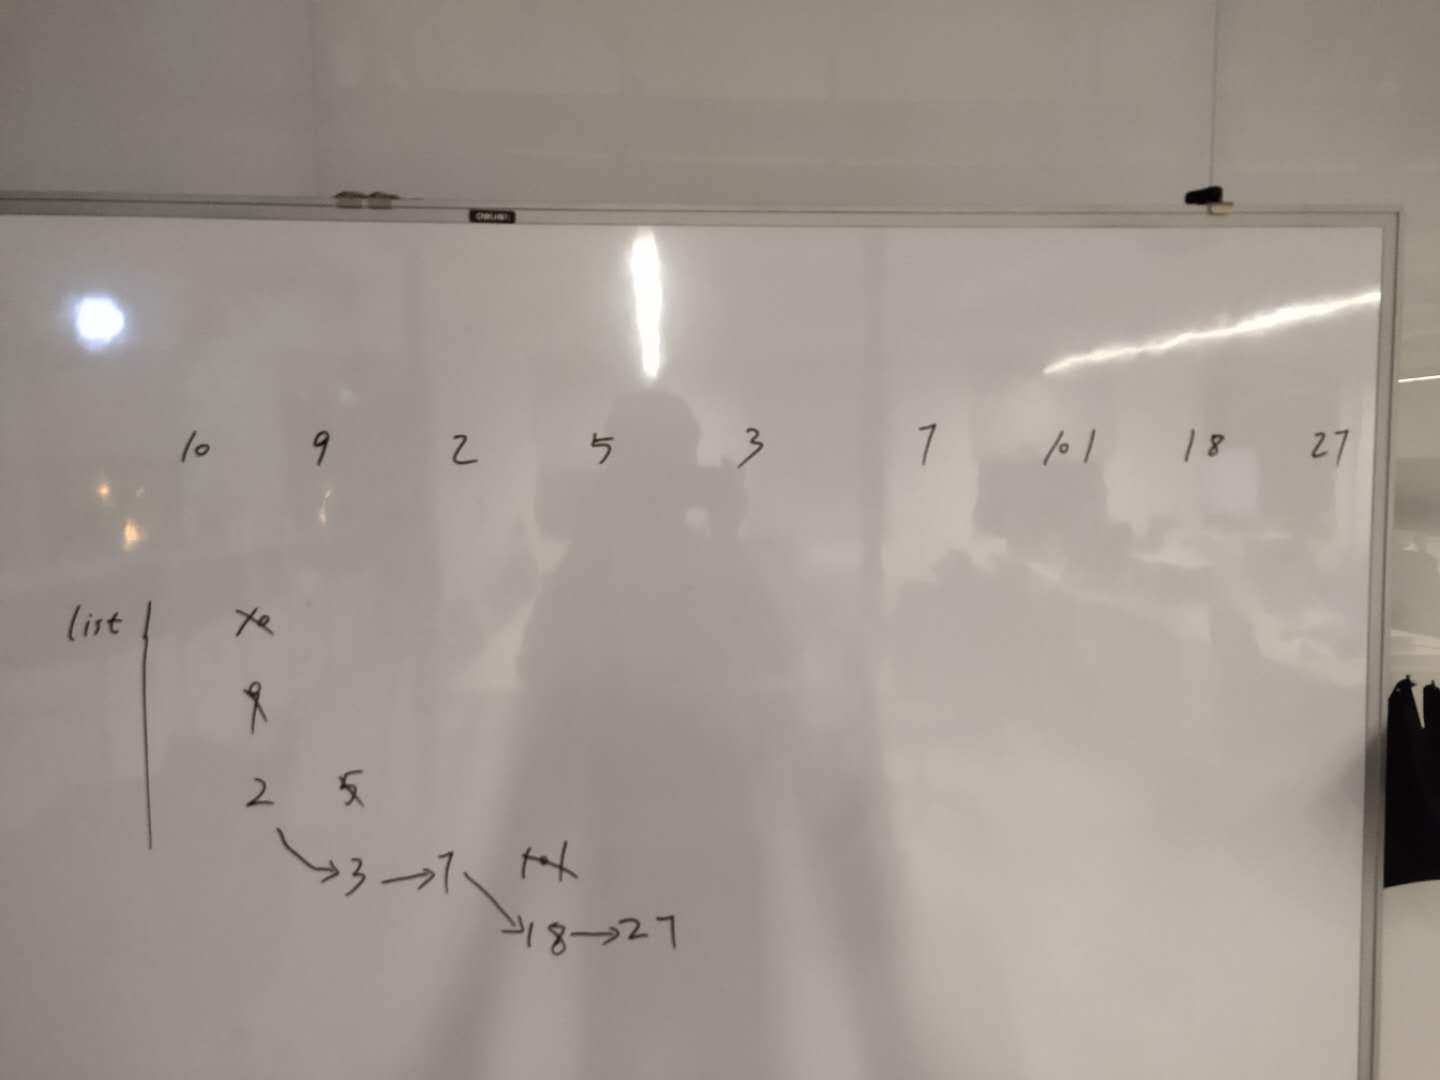 10 9 2 5 3 7 101 18 27
list 10
9
2 5
→3→7 101
→18→27